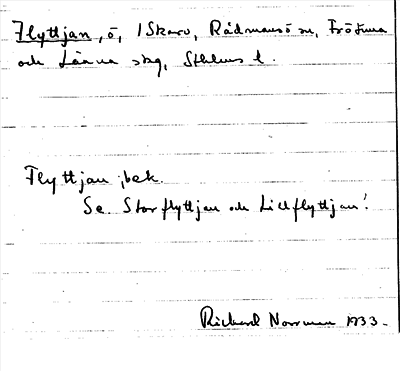 Flyttjan, ö, I Skarv, Rådmansö sn, Frötuna
och Länna skg, Sthlms l.
Flyttjan, bek.
Se Storflyttjan och Lillflyttjan!
Rickard Norrman 1933.